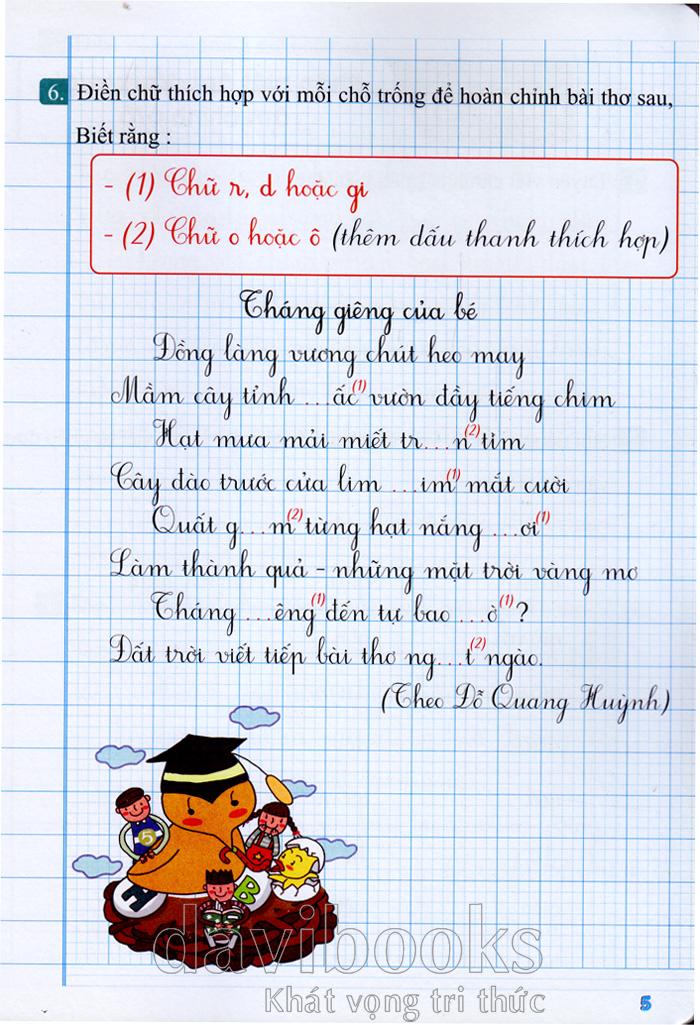 6. Điền chữ thích hợp với mỗi chỗ trống để hoàn chỉnh bài thơ sau,
Biết rằng :
- (1) Chữ r, d hoặc gi
- (2) Chữ o hoặc ô (thêm dấu thanh thích hợp)
Tháng giêng của bé
Đồng làng vương chút heo may
Mầm cây tỉnh ...ấc(1) vườn đầy tiếng chim
Hạt mưa mải miết tr...n(2) tìm
Cây đào trước cửa lim ...im(1) mắt cười
Quất g...m(2) từng hạt nắng ...ơi(1)
Làm thành quả - những mặt trời vàng mơ
Tháng ...êng(1) đến tự bao ...ờ(1)?
Đất trời viết tiếp bài thơ ng...t(2) ngào.
(Theo Đỗ Quang Huỳnh)
5
H
B
davibooks
Khát vọng tri thức
5